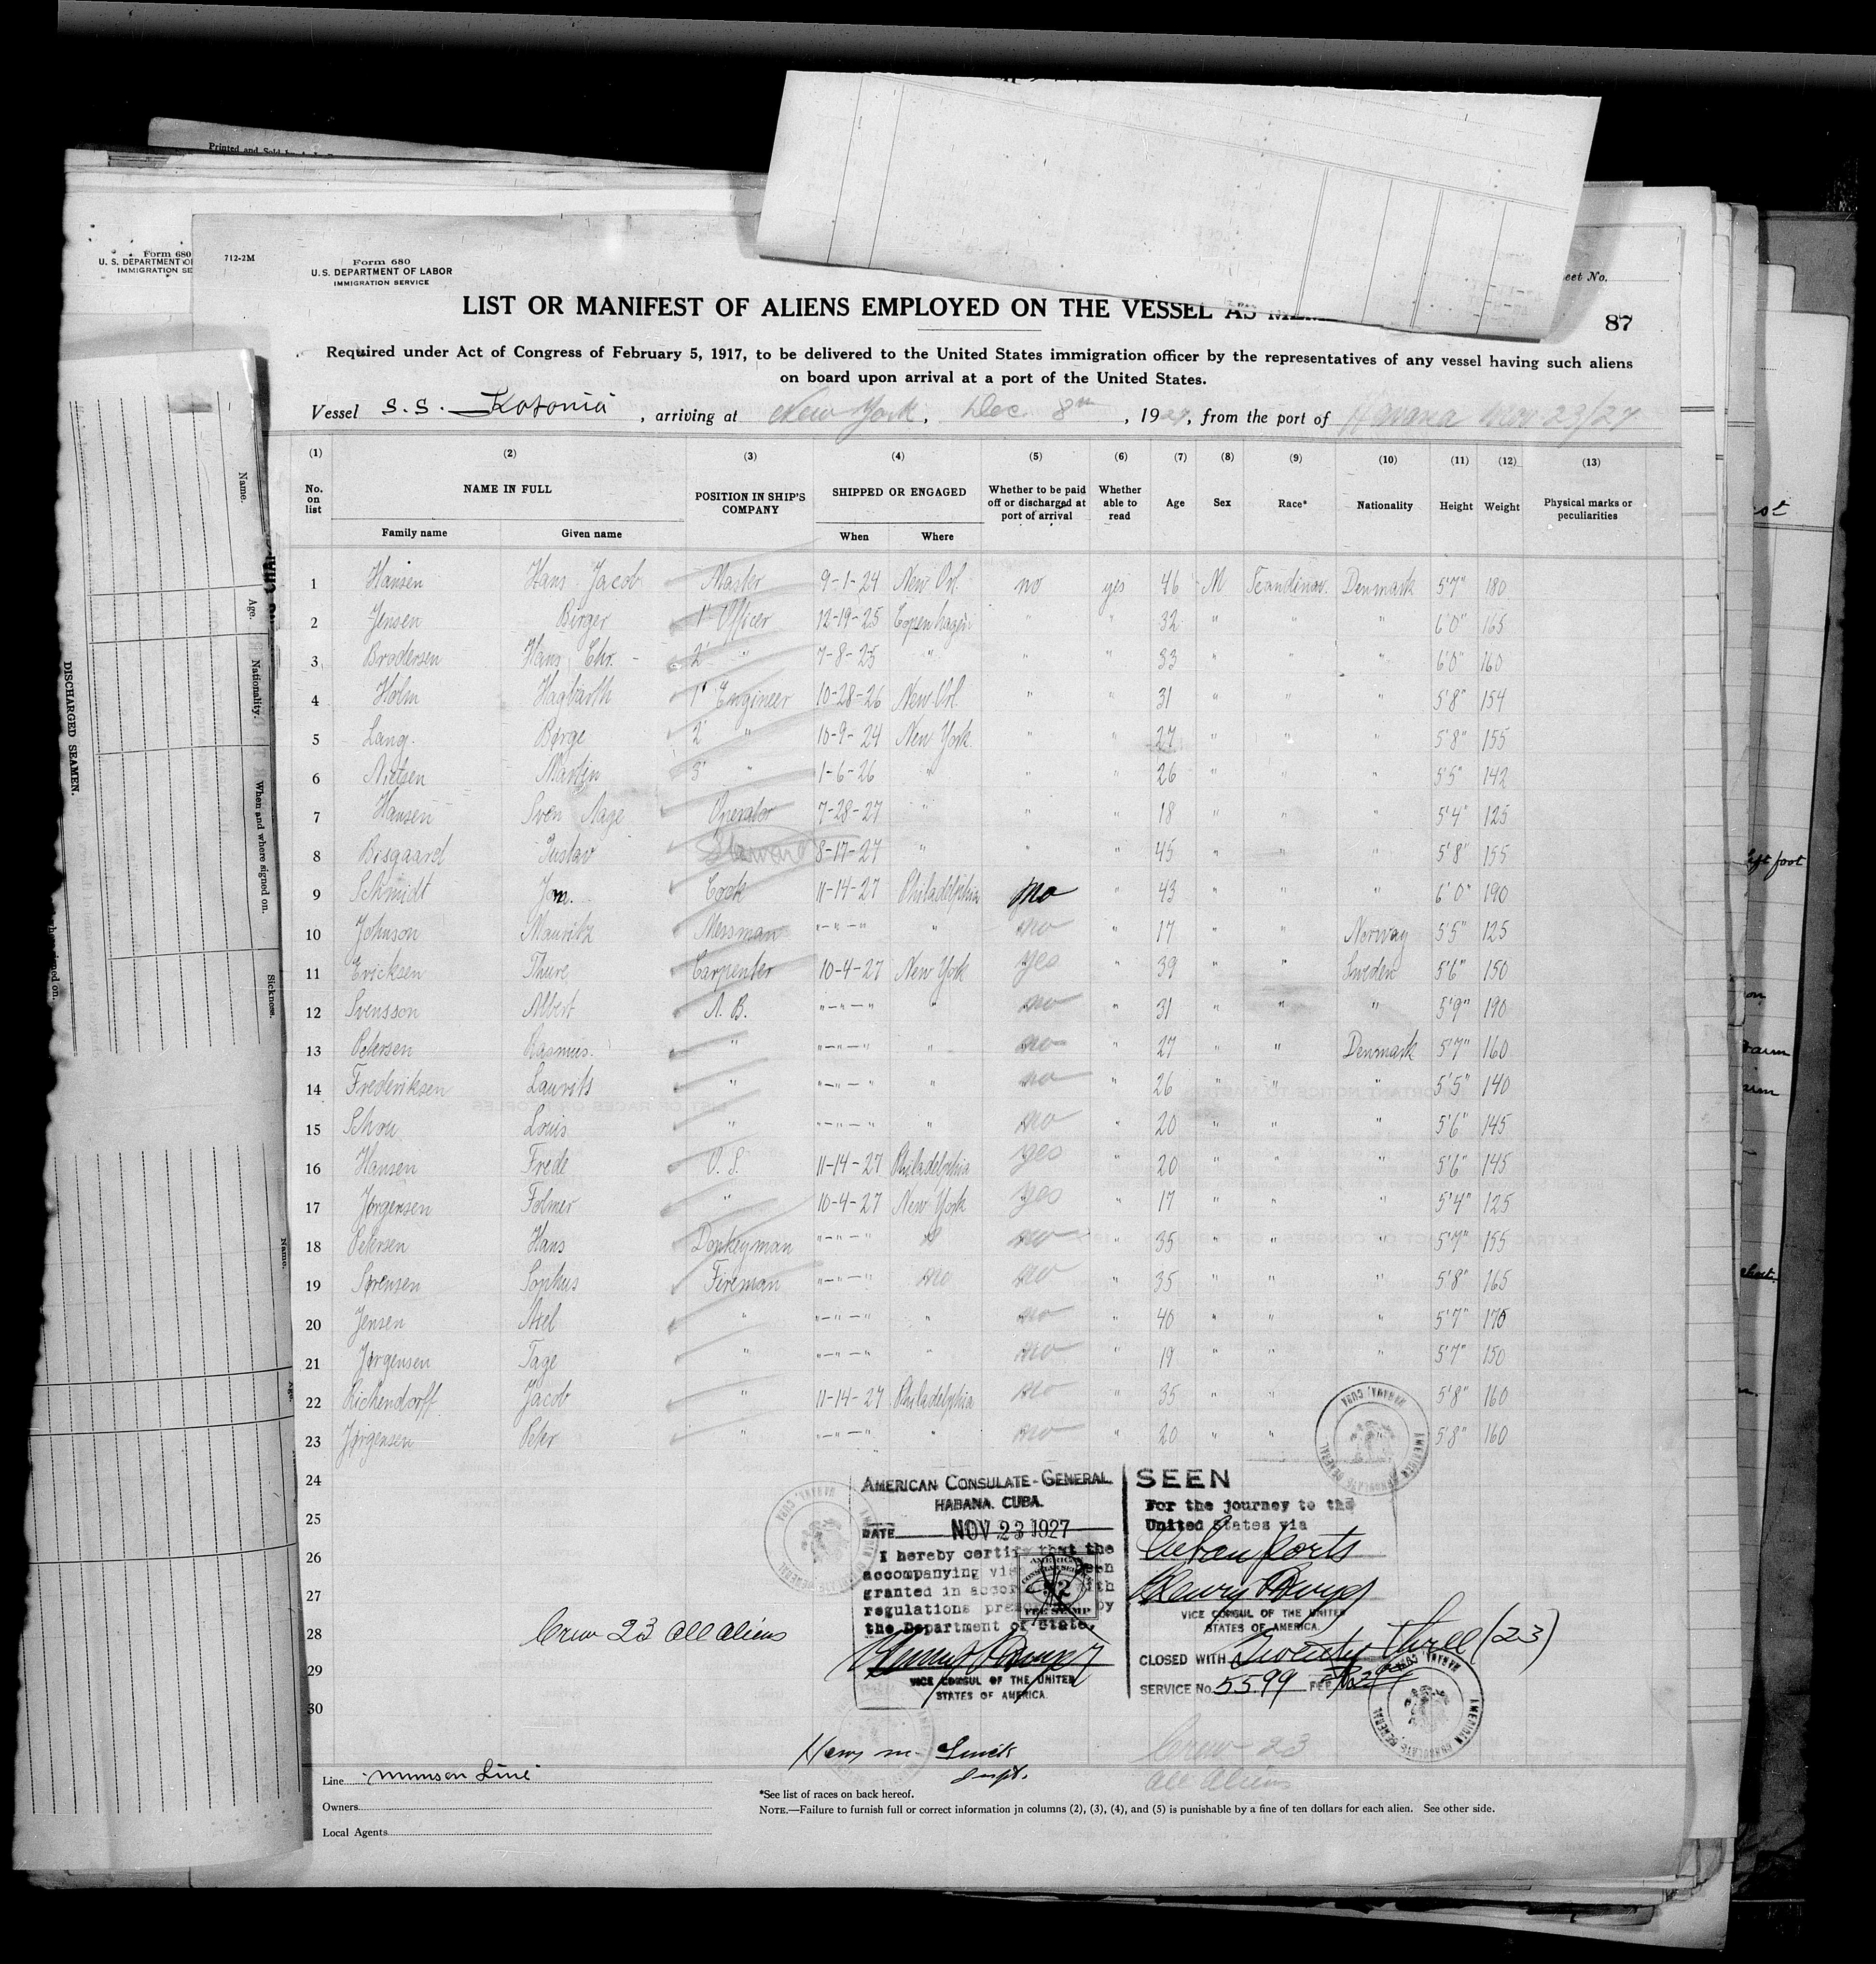 Printed and Sold by
Form 680
U. S. DEPARTMENT OF
IMMIGRATION SE
712-2M
Form 680
U. S. DEPARTMENT OF LABOR
IMMIGRATION SERVICE
eet No.
LIST OR MANIFEST OF ALIENS EMPLOYED ON THE VESSEL AS MEM
87
Required under Act of Congress of February 5, 1917, to be delivered to the United States immigration officer by the representatives of any vessel having such aliens
on board upon arrival at a port of the United States.
Vessel S.S. Kotonia, arriving at New York, Dec. 8th, 1927, from the port of Havana Nov 23/27
(1) (2) (3) (4) (5) (6) (7) (8) (9) (10) (11) (12) (13)
No. on list NAME IN FULL POSITION IN SHIP'S COMPANY SHIPPED OR ENGAGED Whether to be paid off or discharged at port of arrival Whether able to read Age Sex Race* Nationality Height Weight Physical marks or peculiarities
Family name Given name When Where
1 Hansen Hans Jacob Master 9-1-24 New Orl. no yes 46 M Scandinav. Denmark 5'7" 180
2 Jensen Birger 1' Officer 12-19-25 Copenhagen " " 32 " " " 6'0" 165
3 Brodersen Hans Chr. - 2' " 7-8-25 " " " 33 " " " 6'0" 160
4 Holm Hagbarth 1' Engineer 10-28-26 New Orl. " " 31 " " " 5'8" 154
5 Lang. Børge 2' " 10-9-24 New York. " " 27 " " " 5'8" 155
6 Nielsen Martin 3' " 1-6-26 " " " 26 " " " 5'5" 142
7 Hansen Sven Aage Operator 7-28-27 " " " 18 " " " 5'4" 125
8 Bisgaard Gustav Steward 8-17-27 " " " 45 " " " 5'8" 155
9 Schmidt Jon. Cook 11-14-27 Philadelphia no " 43 " " " 6'0" 190
10 Johnson Mauritz Messman "-"-" " no " 17 " " Norway 5'5" 125
11 Ericksen Thure Carpenter 10-4-27 New York yes " 39 " " Sweden 5'6" 150
12 Svensson Albert A. B. "-"-" " no " 31 " " " 5'9" 190
13 Petersen Rasmus. " "-"-" " no " 27 " " Denmark 5'7" 160
14 Frederiksen Laurits " "-"-" " no " 26 " " " 5'5" 140
15 Schou Louis " "-"-" " no " 20 " " " 5'6" 145
16 Hansen Frede O. S. 11-14-27 Philadelphia yes " 20 " " " 5'6" 145
17 Jørgensen Folmer " 10-4-27 New York yes " 17 " " " 5'4" 125
18 Petersen Hans Donkeyman "-"-" " no " 35 " " " 5'7" 155
19 Sørensen Sophus Fireman "-"-" no no " 35 " " " 5'8" 165
20 Jensen Axel " "-"-" " no " 40 " " " 5'7" 170
21 Jørgensen Tage " "-"-" " no " 19 " " " 5'7" 150
22 Richendorff Jacob " 11-14-27 Philadelphia no " 35 " " 5'8" 160
23 Jørgensen Peter " "-"-" " no " 20 " " 5'8" 160
24
25
26
27
28
29
30
AMERICAN CONSULATE-GENERAL
HABANA, CUBA.
DATE NOV 23 1927
I hereby certify that the
accompanying vis een
granted in accor with
regulations pre by
the Department of State.
VICE CONSUL OF THE UNITED
STATES OF AMERICA.
SEEN
For the journey to the
United States via
Cuban Ports
VICE CONSUL OF THE UNITED
STATES OF AMERICA.
CLOSED WITH Twenty three (23)
SERVICE No. 5599 FEE
AMERICAN CONSULATE GENERAL HABANA, CUBA
Crew 23 all aliens
Crew 23
all aliens
Line Munson Line
Owners
Local Agents
*See list of races on back hereof.
NOTE.—Failure to furnish full or correct information in columns (2), (3), (4), and (5) is punishable by a fine of ten dollars for each alien. See other side.
DISCHARGED SEAMEN.
Name.
Age.
Nationality.
When and where signed on.
Sickness.
Name.
left foot